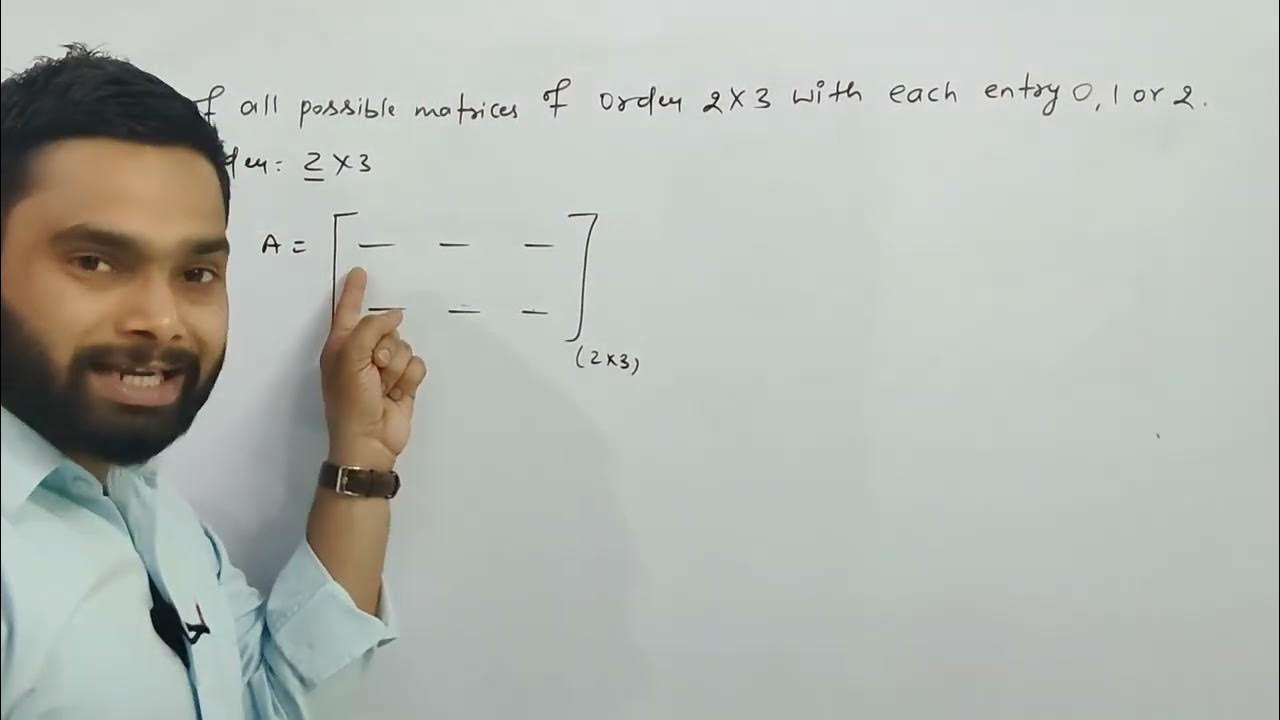 of all possible matrices of order 2×3 with each entry 0, 1 or 2.
der: 2×3
A = [ — — —
— — — ]
(2×3)